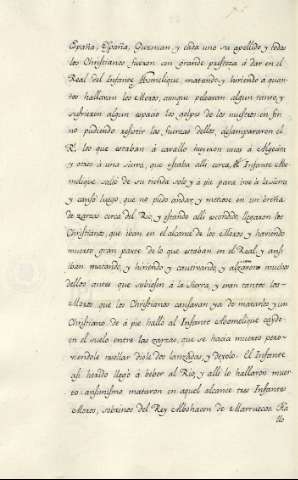 España, España, Guzman, y cada uno su apellido, y todos
los Christianos fueron con grande priesa à dar en el
Real del Infante Abomelique, matando, y hiriendo a quan-
tos hallavan los Moros, aunque pelearon algun tanto, y
sufrieron algun espacio los golpes de los nuestros en fin
no pudiendo resistir las fuerças dellos desampararon el
R. los que estaban à cavallo fuyeron unos à Algecira
y otros à una Sierra, que estaba alli cerca, el Infante Abo-
melique salió de su tienda solo y a pie para irse à la sierra
y cansó luego, que no pudo andar, y metiose en un breña
de zarzas cerca del Rio, y estando alli escondido llegaron los
Christianos, que iban en el alcance de los Moros, y haviendo
muerto gran parte de lo que estaban en el Real, y ansi
iban matando, y hiriendo, y cautivando, y alcanzaron muchos
dellos antes que subiesen à la Sierra, y eran tantos los
Moros, que los Christianos cansavan ya de matarlos, y un
Christiano de à pie halló al Infante Abomelique caido
en el suelo entre las zarzas, que se hacia muerto pero
viendole resollar diole dos lanzadas, y dexolo. El Infante
asi herido llegó à beber al Rio, y alli le hallaron muer-
to: ansimismo mataron en aquel alcance tres Infantes
Moros, sobrinos del Rey Albohacen de Marruecos. Ha
llo